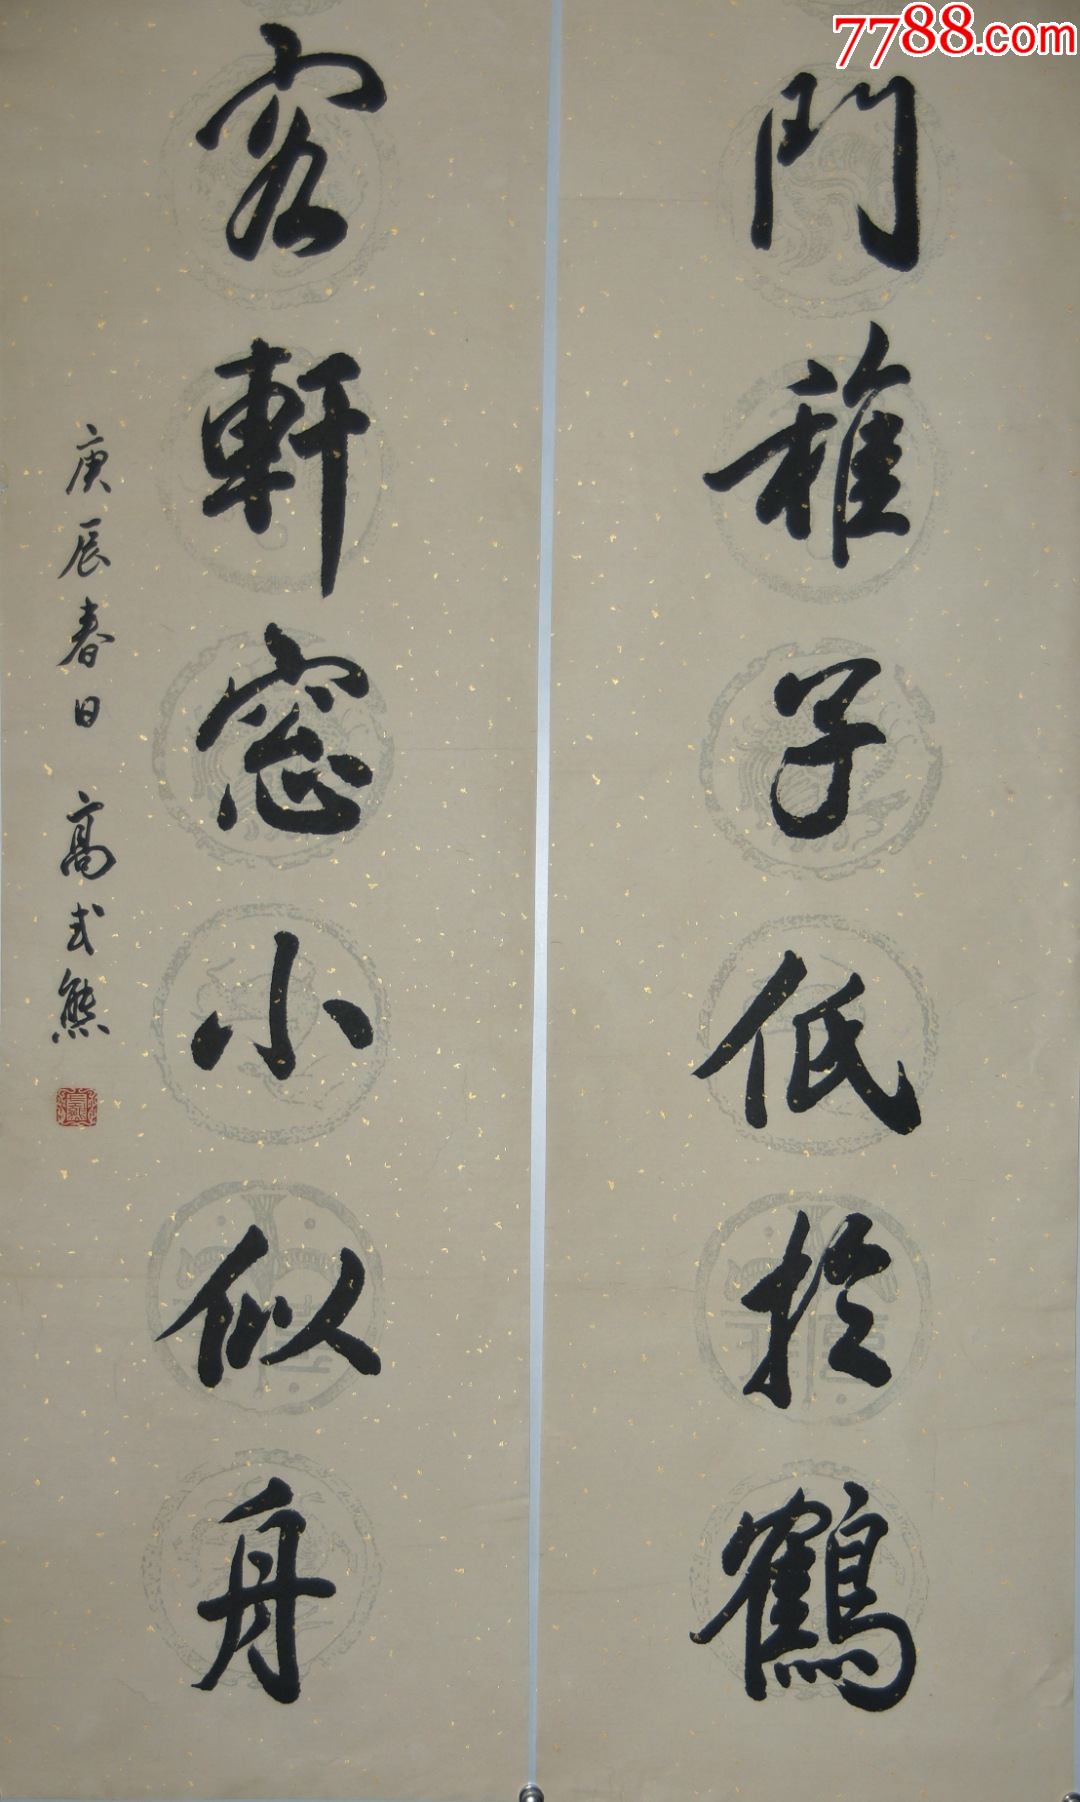 7788.com
門稚子低於鶴
客軒窓小似舟
庚辰春日 高式熊